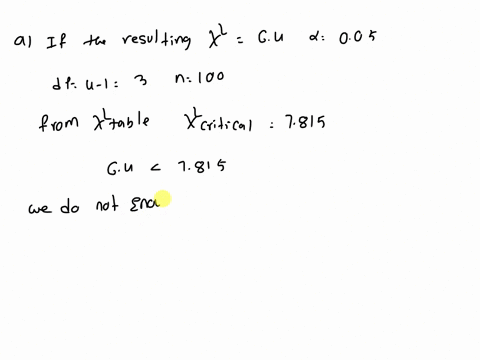 a) If the resulting χ² = 6.4 α = 0.05
df = 4-1 = 3 n = 100
from χ² table χ² critical = 7.815
6.4 < 7.815
we do not